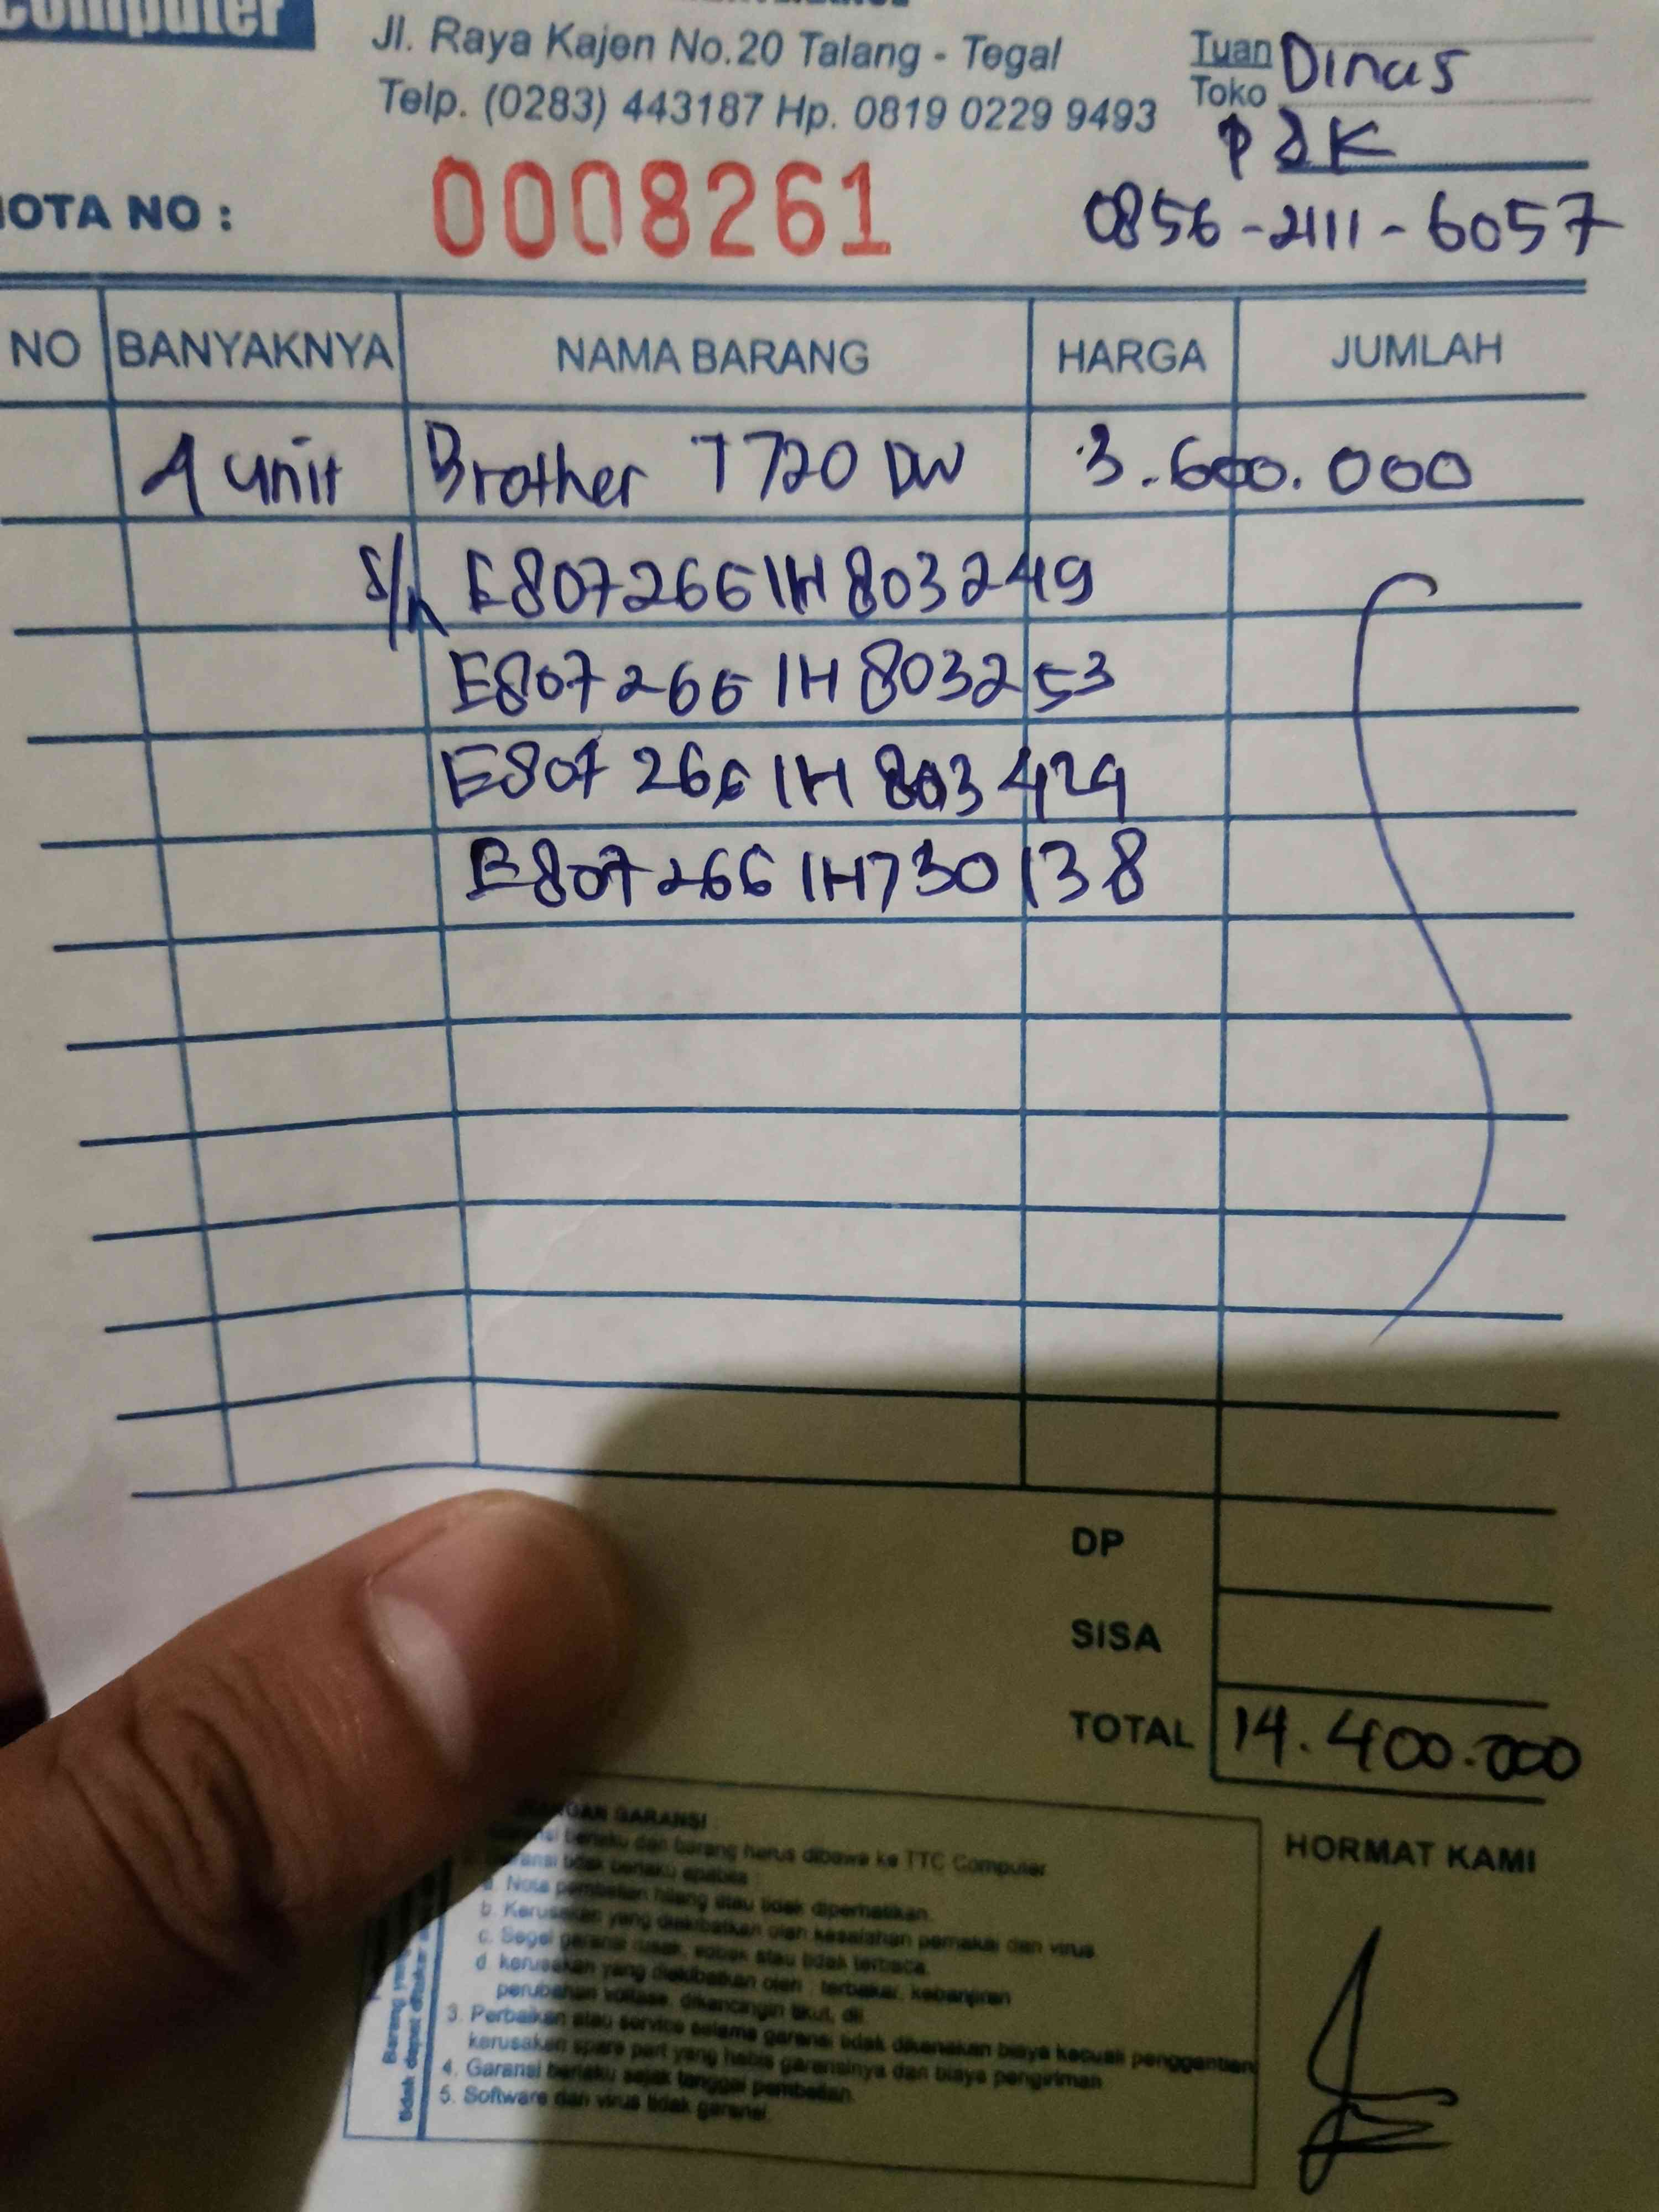 Computer
Jl. Raya Kajen No.20 Talang - Tegal
Telp. (0283) 443187 Hp. 0819 0229 9493
Tuan Dinas
Toko
PdK
0856-2111-6057
OTA NO : 0008261
NO BANYAKNYA NAMA BARANG HARGA JUMLAH
4 unit Brother T720 DW 3.600.000
S/n E8072661H803249
E8072661H803253
E8072661H803429
E8072661H730138
DP
SISA
TOTAL 14.400.000
HORMAT KAMI
GARANSI
berlaku dan barang harus dibawa ke TTC Computer
tidak berlaku apabila :
a. Nota pembelian hilang atau tidak diperhatikan.
b. Kerusakan yang diakibatkan oleh kesalahan pemakai dan virus
c. Segel garansi rusak, sobek atau tidak terbaca.
d. kerusakan yang diakibatkan oleh : terbakar, kebanjiran
perubahan voltase, dikencingin tikut, dll.
3. Perbaikan atau service selama garansi tidak dikenakan biaya kecuali penggantian
kerusakan spare part yang habis garansinya dan biaya pengiriman
4. Garansi berlaku sejak tanggal pembelian.
5. Software dan virus tidak garansi.
Barang
tidak dapat ditukar